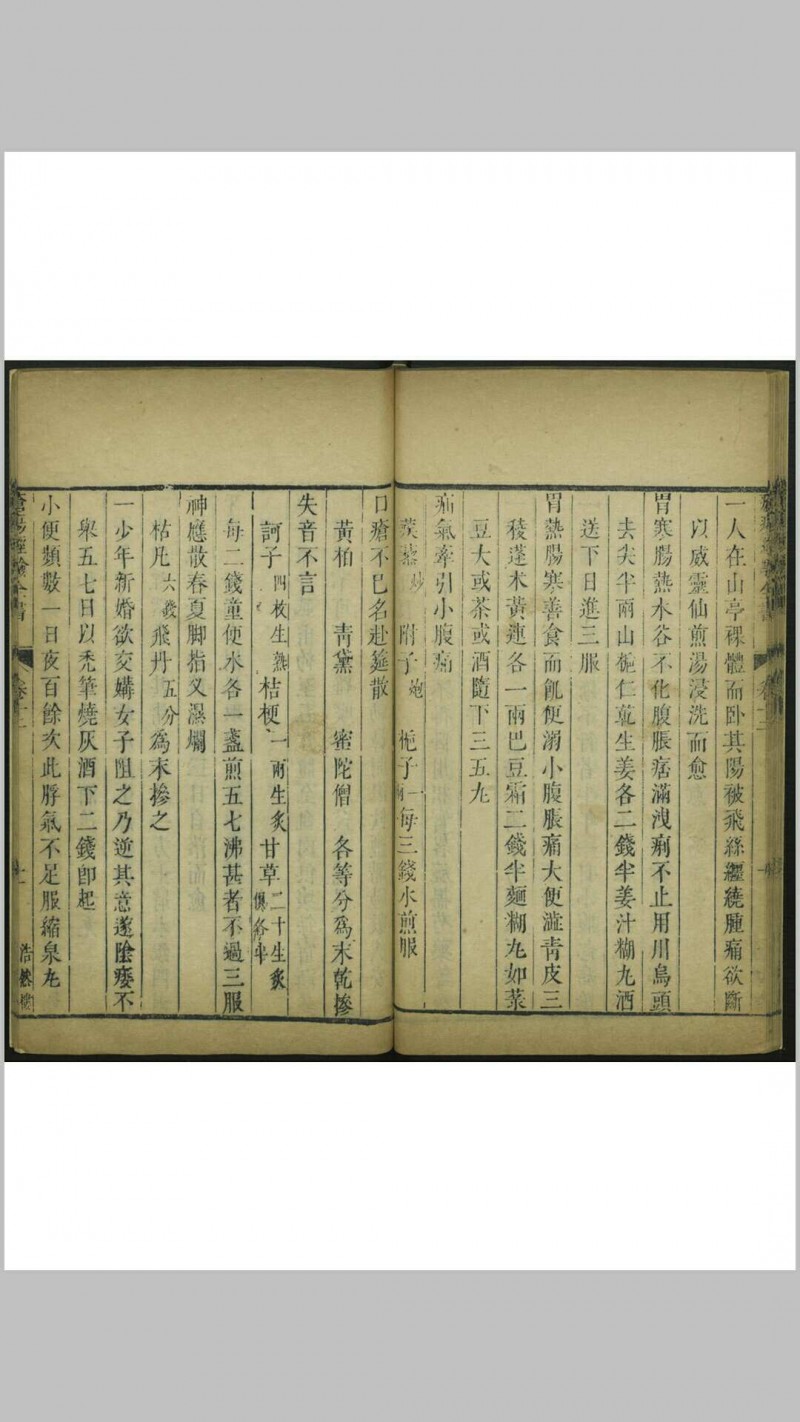 一人在山亭裸體而卧其陽被飛絲纏繞腫痛欲斷
以威靈仙煎湯浸洗而愈
胃寒腸熱水谷不化腹脹痞滿洩痢不止用川烏頭
去尖半兩山梔仁乾生姜各二錢半姜汁糊丸酒
送下日進三服
胃熱腸寒善食而飢便溺小腹脹痛大便澁青皮三
稜蓬术黃連各一兩巴豆霜二錢半麵糊丸如菉
豆大或茶或酒隨下三五丸
疝氣牽引小腹痛
炒 附子炮 梔子一兩每三錢水煎服
口瘡不已名赴筵散
黃柏 青黛 蜜陀僧 各等分爲末乾摻
失音不言
訶子四枚生熟 桔梗一兩生炙 甘草二十生炙俱各半
每二錢童便水各一盞煎五七沸甚者不過三服
神應散春夏脚指叉濕爛
枯凡六錢飛丹五分爲末摻之
一少年新婚欲交媾女子阻之乃逆其意遂陰痿不
舉五七日以禿筆燒灰酒下二錢卽起
小便頻數一日夜百餘次此脬氣不足服縮泉丸
卷十二
十一